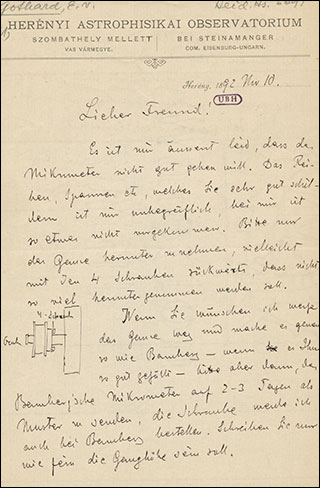 Gothard, E. v.
Heid. Hs.
HERÉNYI ASTROPHISIKAI OBSERVATORIUM
SZOMBATHELY MELLETT
VAS VÁRMEGYE.
BEI STEINAMANGER
COM. EISENBURG-UNGARN.
Herény, 1892 Nov. 10.
UBH
Lieber Freund!
Es ist mir äusserst leid, dass das
Mikrometer nicht gut gehen will. Das Rei-
ben, Spannen etc, welches Sie sehr gut schil-
dern ist mir unbegreiflich, bei mir ist
so etwas nicht vorgekommen. Bitte nur
das Ganze herunter zu nehmen, vielleicht
mit den 4 Schrauben rückwärts, dass nicht
so viel heruntergenommen werden soll.
4 Schraub
Wenn Sie wünschen ich werfe
das Ganze weg und mache es genau
so wie Bamberg – wenn es Ihnen
so gut gefällt – bitte aber dann, das
Bambergische Mikrometer auf 2-3 Tagen als
Muster zu senden, die Schraube werde ich
auch bei Bamberg bestellen. Schreiben Sie nur
wie fein die Ganghöhe sein soll.